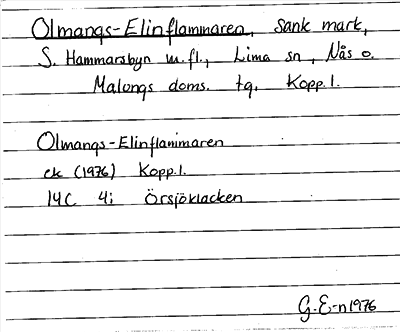 Olmangs-Elinflammaren, Sank mark,
S. Hammarsbyn m.fl., Lima sn, Nås o.
Malungs doms. tg. Kopp.l.
Olmangs-Elinflammaren
ek (1976) Kopp.l.
14C 4i Örsjöklacken
G.E-n 1976